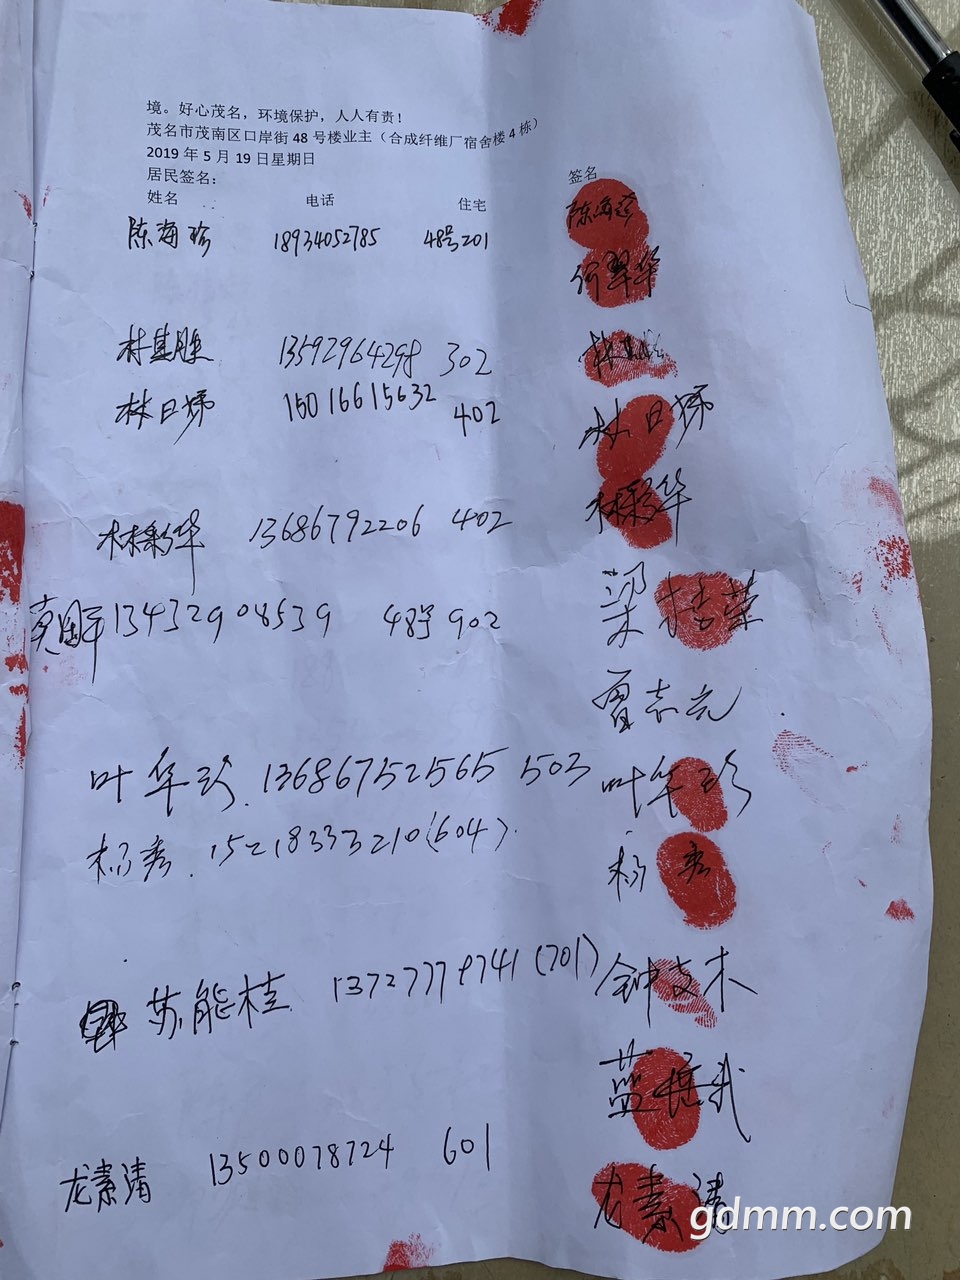 境。好心茂名，环境保护，人人有责！
茂名市茂南区口岸街 48 号楼业主（合成纤维厂宿舍楼 4 栋）
2019 年 5 月 19 日星期日
居民签名：
姓名 电话 住宅 签名
陈海珍 18934052785 48号201 陈海珍
何翠华
林基胜 13592964298 302
林日娣 15016615632 402 林日娣
林彩华 13686792206 402 林彩华
13432908539 48号 902 梁培荣
曾志元
叶华珍 13686752565 503 叶华珍
杨秀 15218333210(604) 杨秀
苏能桂 13727779741(701) 钟文木
蓝
龙素清 13500078724 601 龙素清
gdmm.com